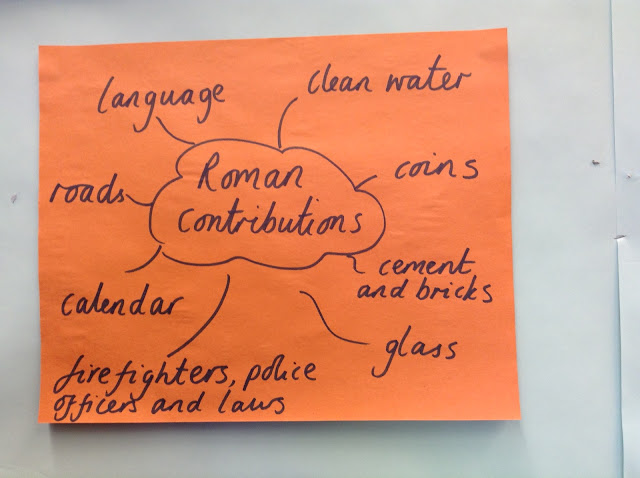 language
clean water
Roman
contributions
roads
coins
calendar
cement
and bricks
glass
firefighters, police
officers and laws